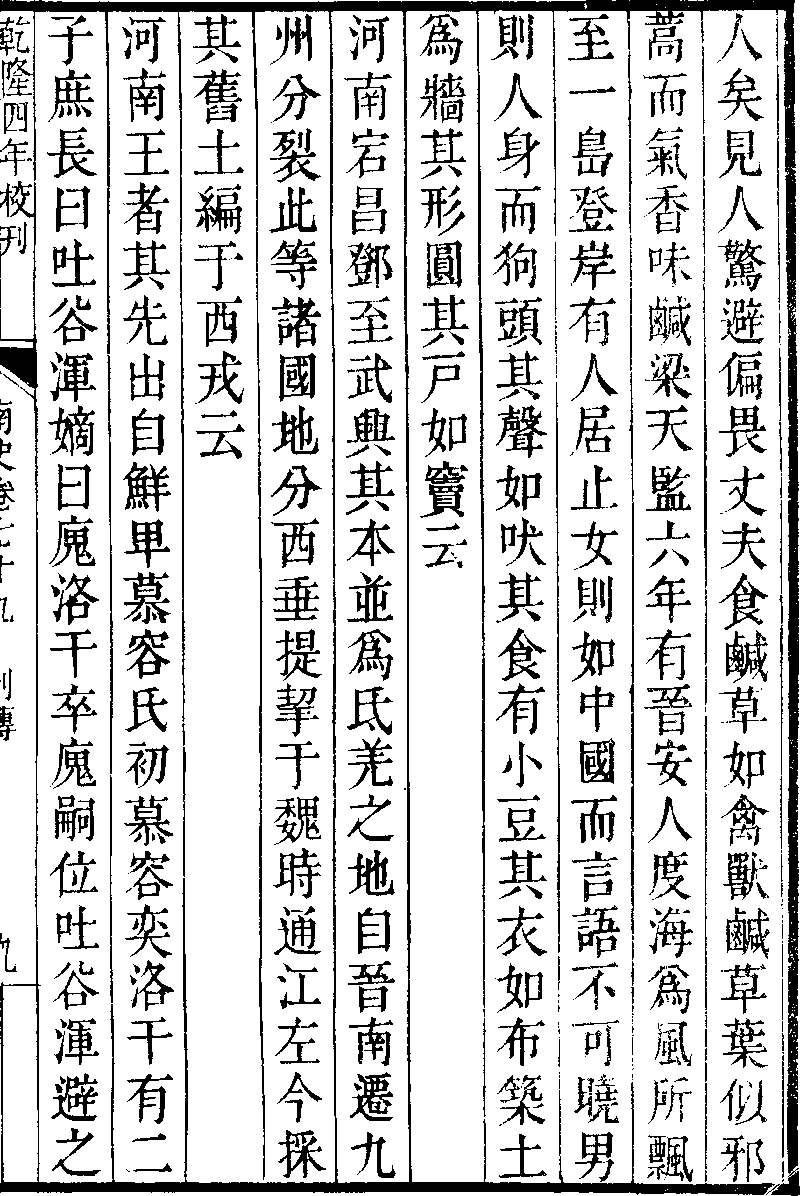 人矣見人驚避偏畏丈夫食鹹草如禽獸鹹草葉似邪
蒿而氣香味鹹梁天監六年有晉安人度海爲風所飄
至一島登岸有人居止女則如中國而言語不可曉男
則人身而狗頭其聲如吠其食有小豆其衣如布築土
爲牆其形圓其戸如竇云
河南宕昌鄧至武興其本並爲氐羌之地自晉南遷九
州分裂此等諸國地分西垂提挈于魏時通江左今採
其舊土編于西戎云
河南王者其先出自鮮卑慕容氏初慕容奕洛干有二
子庶長曰吐谷渾嫡曰廆洛干卒廆嗣位吐谷渾避之
乾隆四年校刊
南史卷七十九 列傳
九